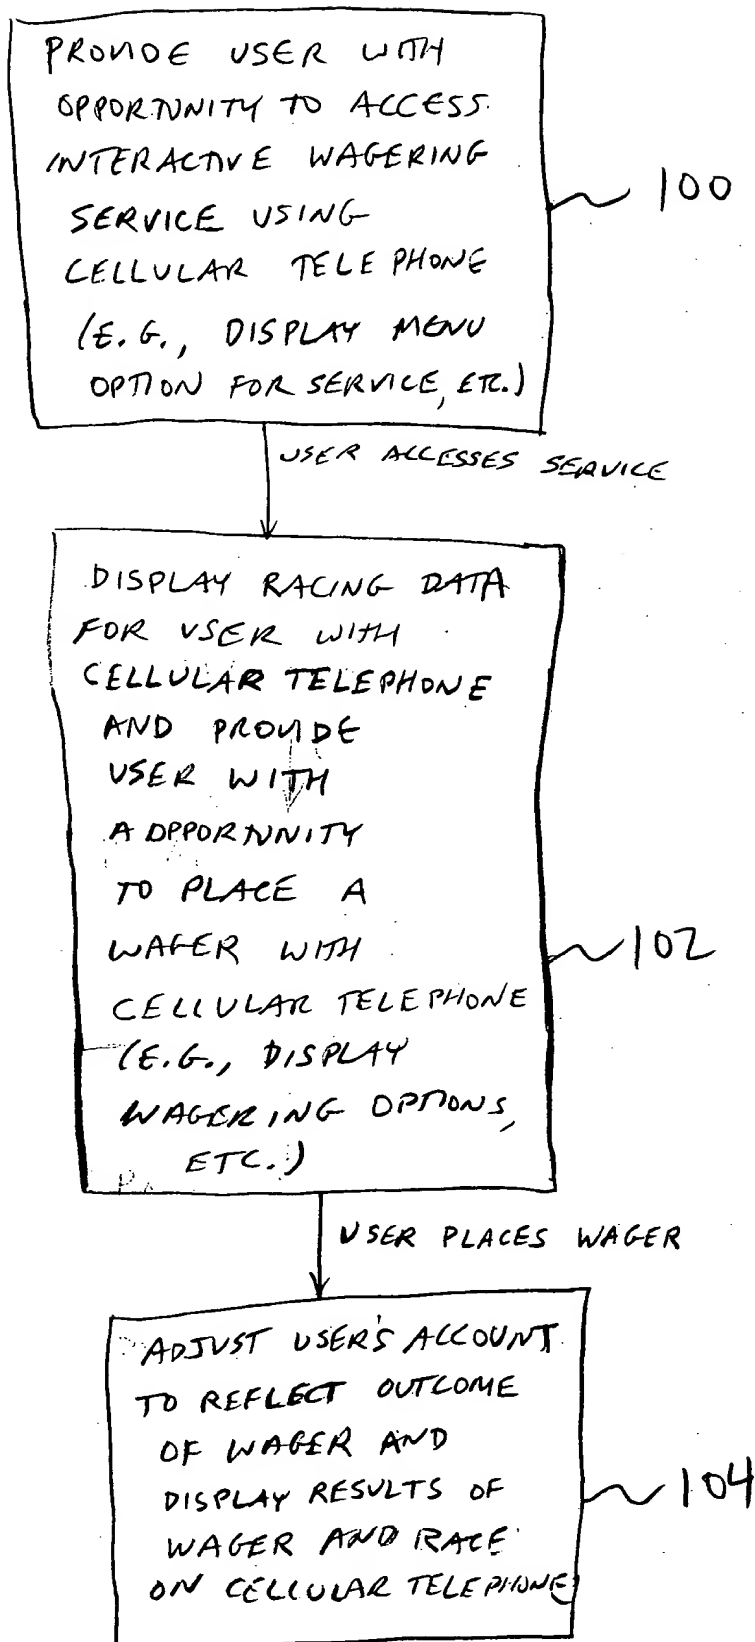 PROVIDE USER WITH
OPPORTUNITY TO ACCESS
INTERACTIVE WAGERING
SERVICE USING
CELLULAR TELEPHONE
(E.G., DISPLAY MENU
OPTION FOR SERVICE, ETC.)
100
USER ACCESSES SERVICE
DISPLAY RACING DATA
FOR USER WITH
CELLULAR TELEPHONE
AND PROVIDE
USER WITH
A OPPORTUNITY
TO PLACE A
WAGER WITH
CELLULAR TELEPHONE
(E.G., DISPLAY
WAGERING OPTIONS,
ETC.)
102
USER PLACES WAGER
ADJUST USER'S ACCOUNT
TO REFLECT OUTCOME
OF WAGER AND
DISPLAY RESULTS OF
WAGER AND RACE
ON CELLULAR TELEPHONE
104